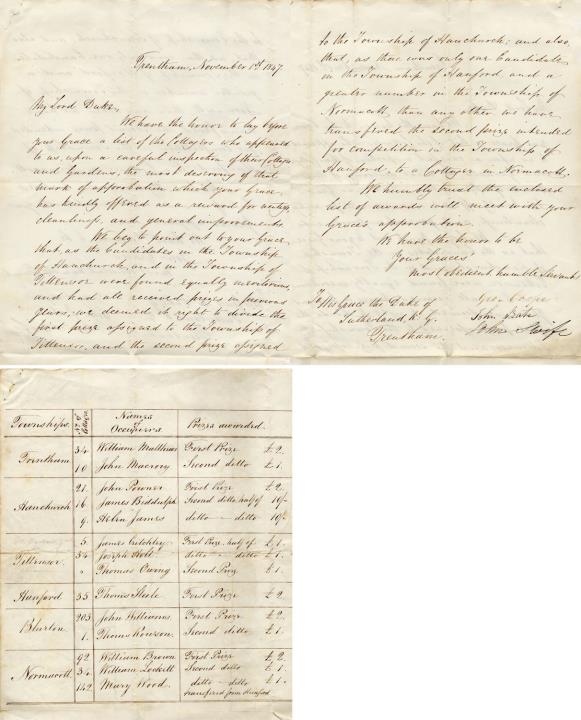 Trentham, November 1st 1847
My Lord Duke,
We have the honor to lay before
your Grace a list of the Cottagers who appeared
to us, upon a careful inspection of their Cottages
and Gardens, the most deserving of that
mark of approbation which your Grace
has kindly offered as a reward for
cleanliness, and general improvements.
We beg to point out to your Grace
that, as the Candidates in the Township
of Hanchurch, and in the Township of
Tittensor were found equally meritorious,
and had all received prizes in previous
years, we deemed it right to divide the
first prize assigned to the Township of
Tittensor, and the second prize assigned
to the Township of Hanchurch; and also,
that, as there was only one Candidate
in the Township of Hanford and a
greater number in the Township of
Normacott, than any other we have
transferred the second prize intended
for competition in the Township of
Hanford, to a Cottager in Normacott.
We humbly trust the enclosed
list of awards will meet with your
Grace's approbation.
We have the honor to be
Your Grace's
most obedient, humble Servants
Geo. Cooper
John
John
To His Grace the Duke of
Sutherland, K. G.
Trentham.
Townships. No. of Cottage. Names of Occupiers Prizes awarded.
Trentham 34 William Matthews First Prize £2.
10 John Second ditto £1.
Hanchurch 21. John First Prize £2.
16 James Biddulph Second ditto, half of 10/-
9. Helen James ditto — ditto 10/-
Tittensor 5. James Critchley First Prize, half of £1.
34 Joseph Holt ditto — ditto £1.
" Thomas Owing Second Prize £1.
Hanford 35 Thomas Steele First Prize £2
Blurton 203 John Williams First Prize £2.
1. Thomas Second ditto £1.
Normacott 92 William Brown First Prize £2.
34. William Lockett Second ditto £1.
142 Mary Wood. ditto — ditto £1.
transferred from Hanford